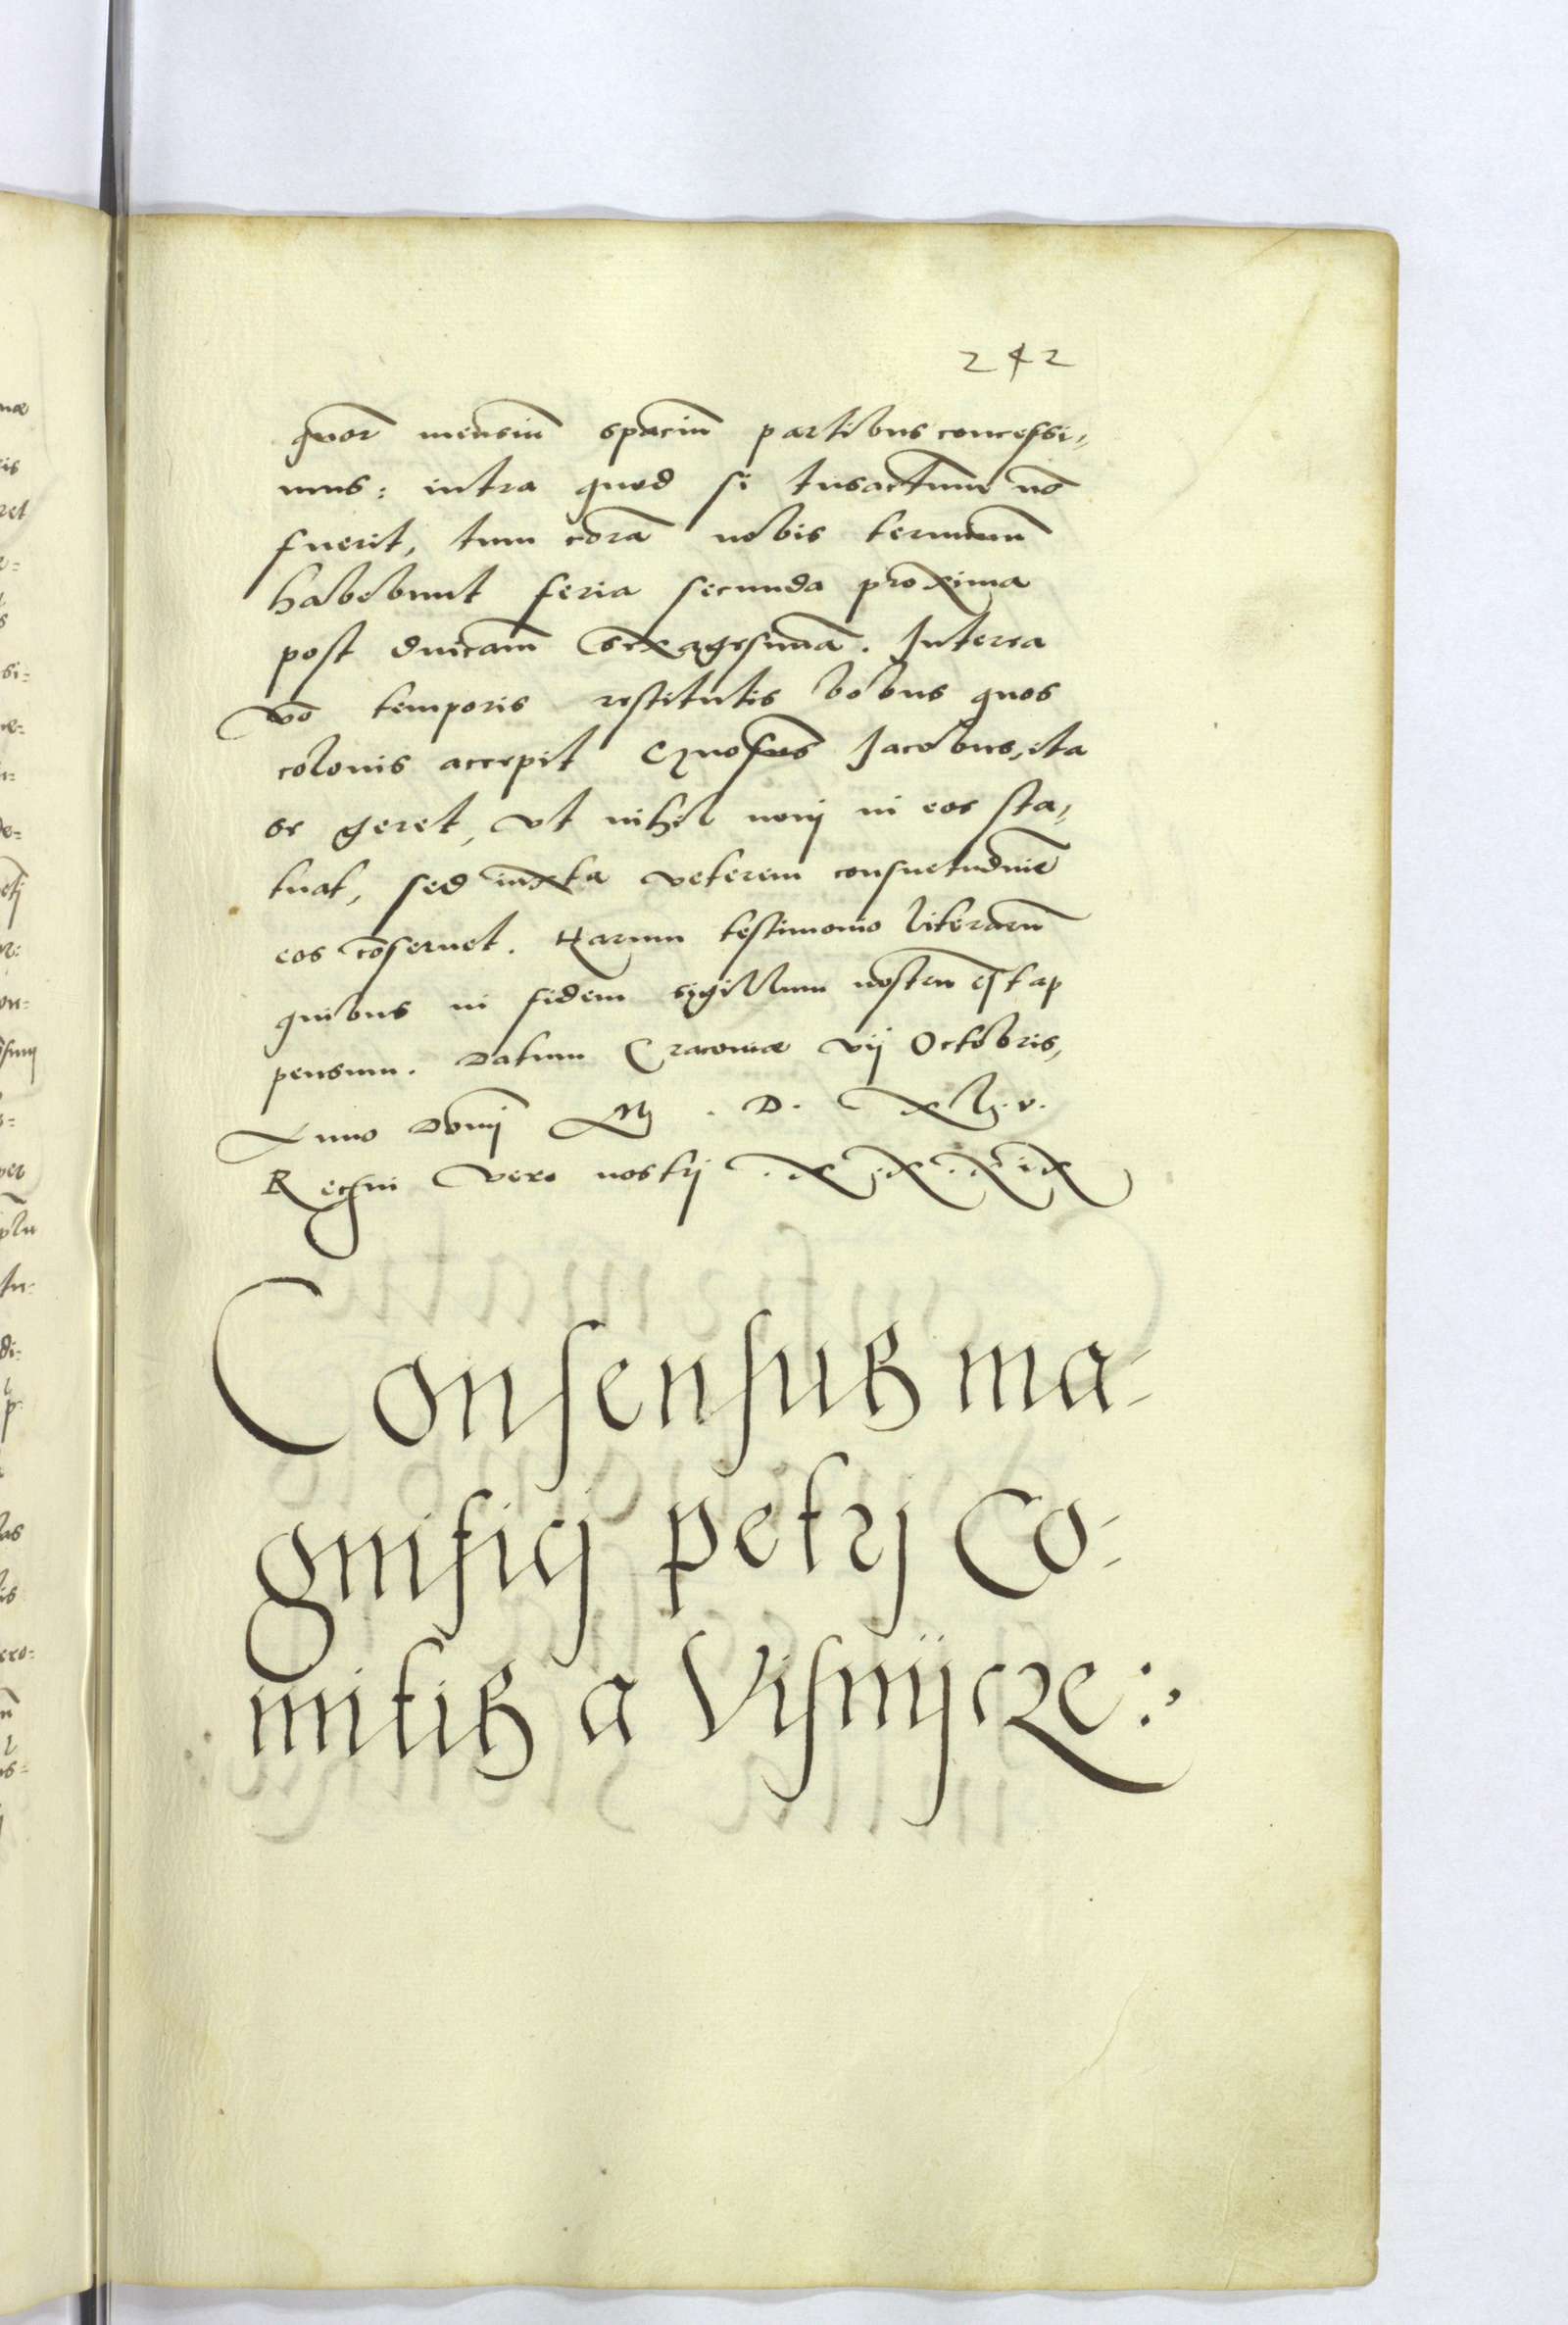 242
quor mensiũ spaciũ partibus concessi-
mus: intra quod si trãsactum nõ
fuerit, tum corã nobis terminum
habebunt feria secunda proxima
post dnicam sexagesimã. Interea
vo temporis restitutis bobus quos
colonis accepit Jacobus, ita
se geret, vt nihil noui in eos sta-
tuat, sed iuxta veterem consuetudinẽ
eos cõseruet. Harum testimonio literarũ
quibus in fidem sigillum nostrũ est ap
pensum. Datum Cracouiæ vij Octobris,
Anno Domi M . D . XL . v .
Regni vero nostrj . X . X . X i X
Consensus ma-
gnificj petrj Co-
mitis a Visnijcze :,